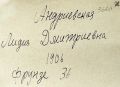 Андриевская
Лидия Дмитриевна
1906
Фрунзе 36